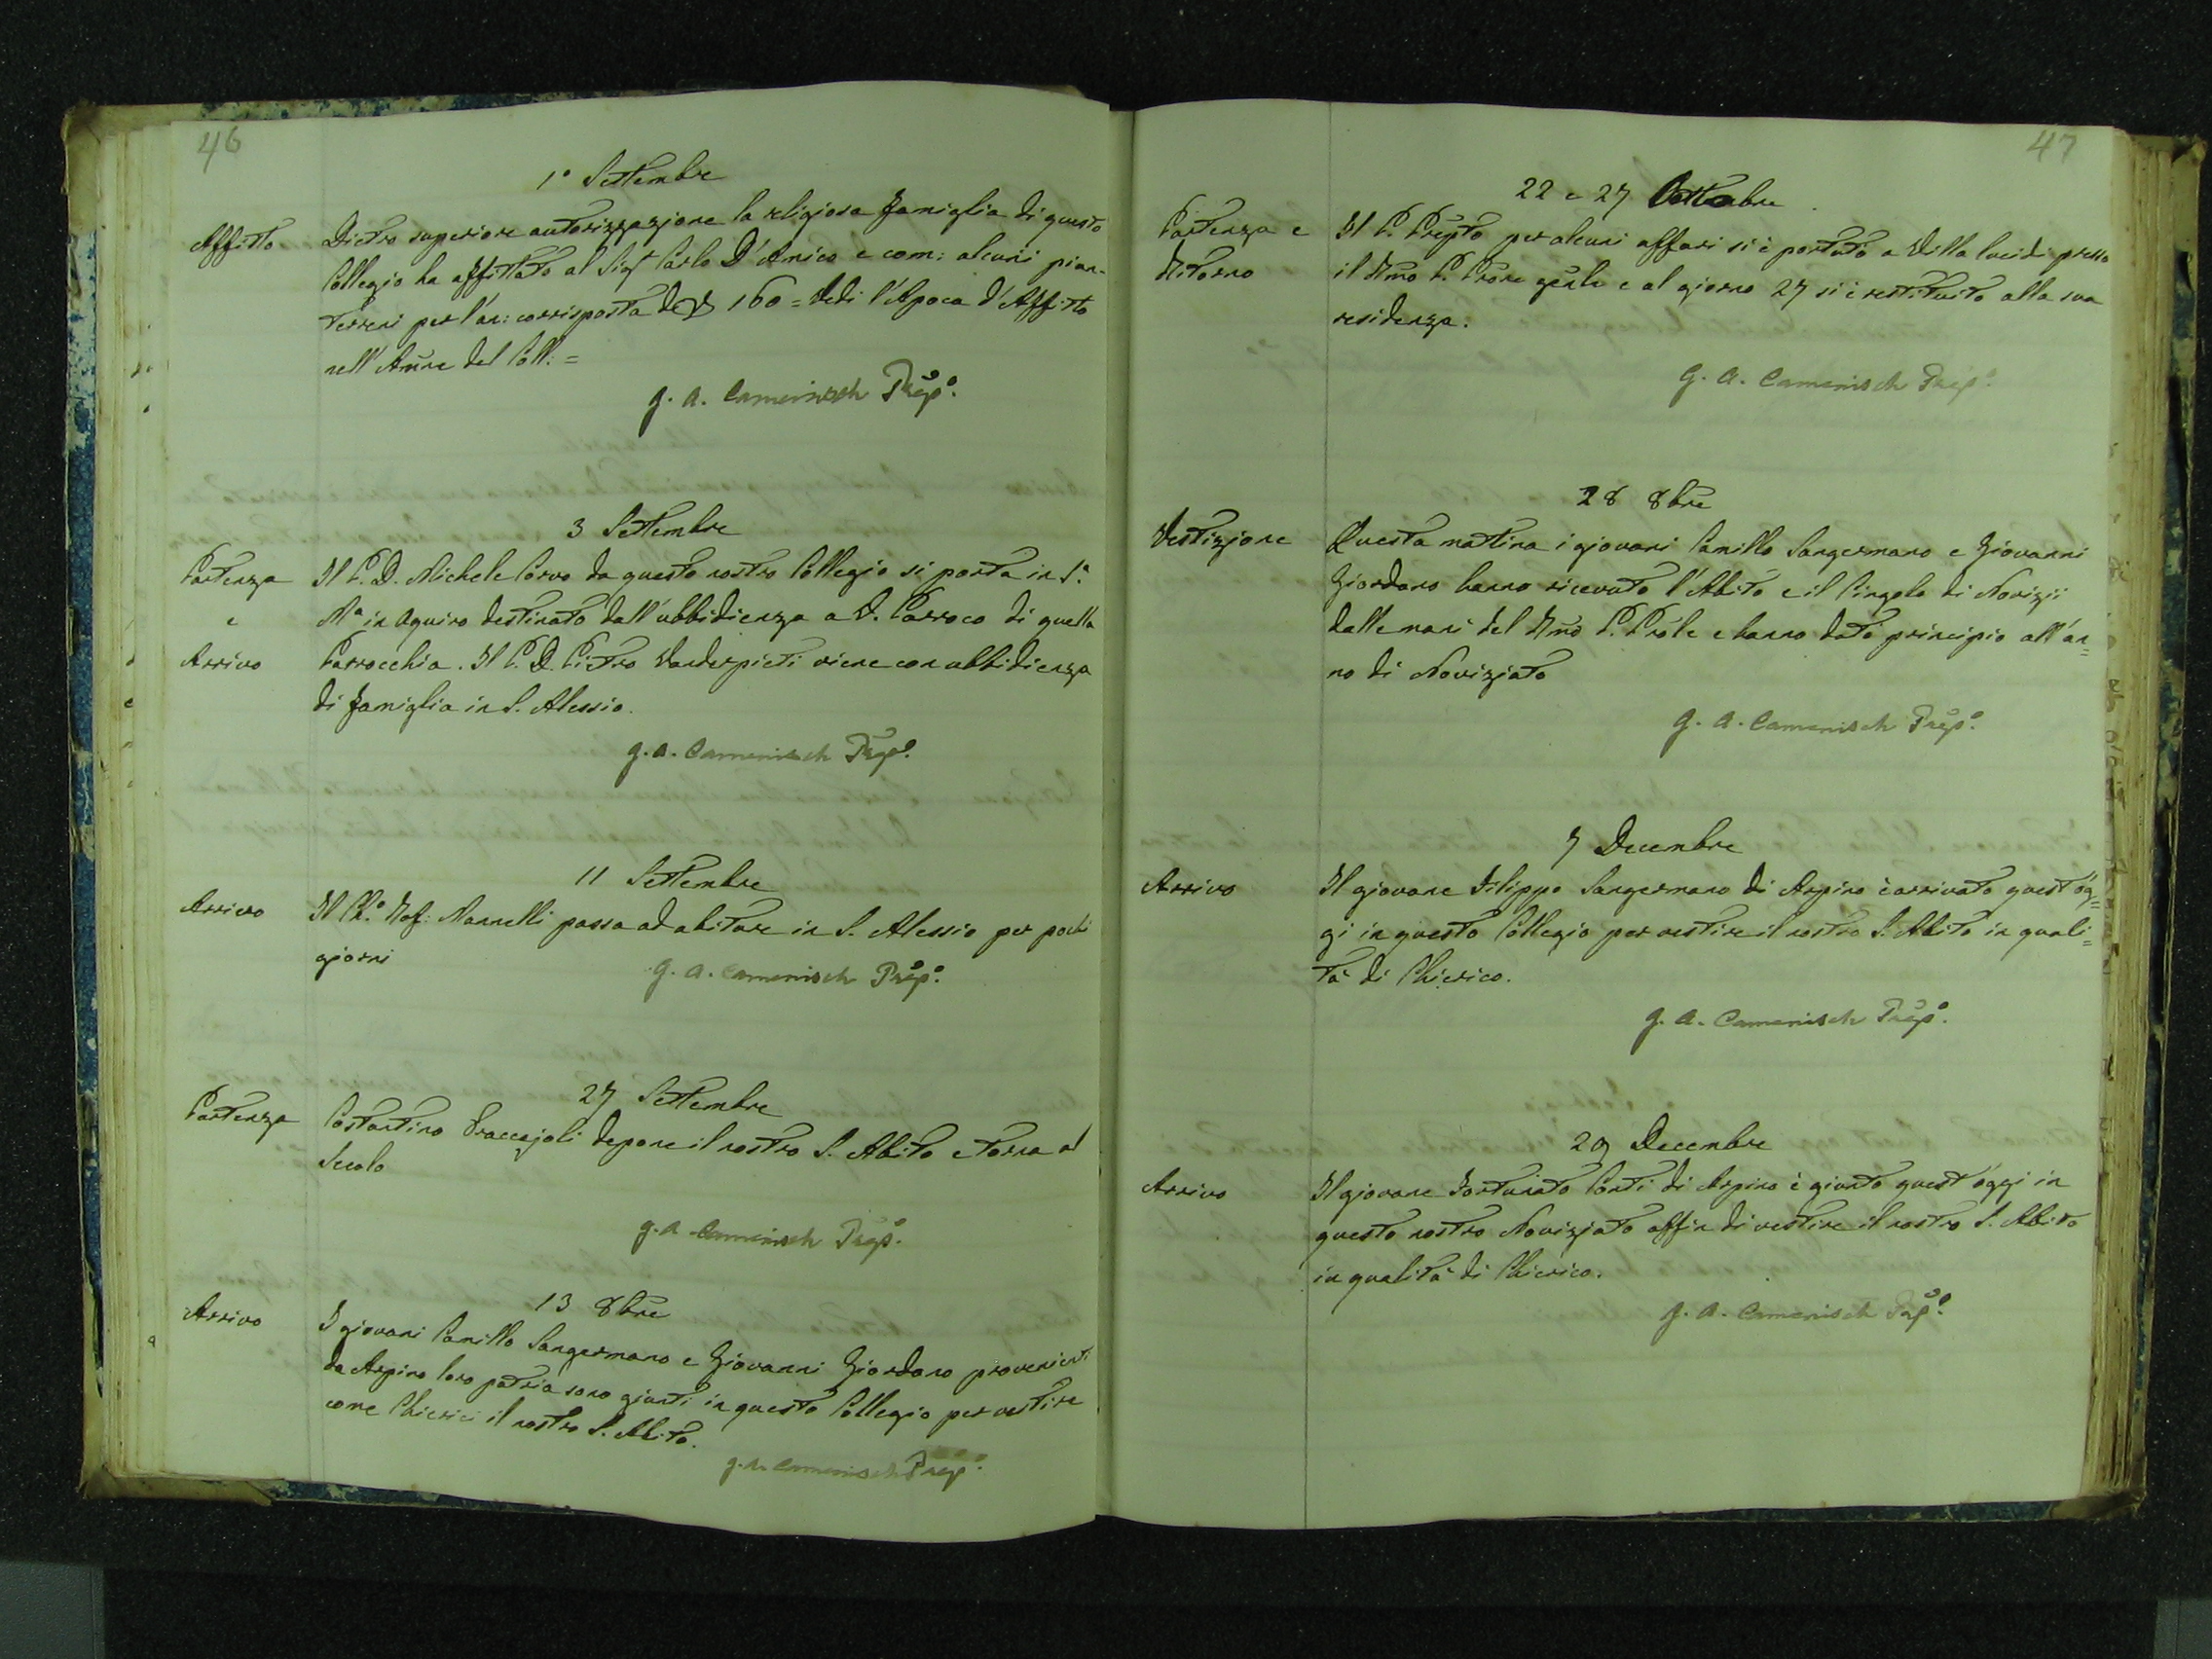 46
1° Settembre
Affitto Dietro superiore autorizzazione la religiosa famiglia di questo
Collegio ha affittato al Sigr Carlo D'Amico e com: alcuni pian-
terreni per l'an: corrisposta di 160 = Vedi l'Apoca d'Affitto
nell' Amre del Coll: =
G. A. Camenisch Prep°.
3 Settembre
Partenza Il P. D. Michele Corvo da questo nostro Collegio si porta in S.a
e Ma in Aquiro destinato dall'ubbidienza a V. Parroco di quella
Arrivo Parrocchia. Il P. D. Pietro Vanderpieti viene con ubbidienza
di famiglia in S. Alessio.
G. A. Camenisch Prep°.
11 Settembre
Arrivo Il Ch.° Raf: Mannelli passa ad abitare in S. Alessio per pochi
giorni
G. A. Camenisch Prep°.
27 Settembre
Partenza Costantino Braccajoli depone il nostro S. Abito e torna al
Secolo
G. A. Camenisch Prep°.
13 8bre
Arrivo I giovani Camillo Sangermano e Giovanni Giordano provenienti
da Arpino loro patria sono giunti in questo Collegio per vestire
come Chierici il nostro S. Abito.
G. A. Camenisch Prep°.
47
22 e 27 Ottobre
Partenza e Il P. Prepto per alcuni affari si è portato a Villa Lucidi presso
Ritorno il Rmo P. Prore genle e al giorno 27 si è restituito alla sua
residenza.
G. A. Camenisch Prep°.
28 8bre
Vestizione Questa mattina i giovani Camillo Sangermano e Giovanni
Giordano hanno ricevuto l'Abito e il Cingolo di Novizii
dalle mani del Rmo P. Prõle e hanno dato principio all'an=
no di Noviziato
G. A. Camenisch Prep°.
7 Decembre
Arrivo Il giovane Filippo Sangermano di Arpino è arrivato quest'og=
gi in questo Collegio per vestire il nostro S. Abito in quali=
tà di Chierico.
G. A. Camenisch Prep°.
29 Decembre
Arrivo Il giovane Fortunato Conti di Arpino è giunto quest'oggi in
questo nostro Noviziato affin di vestire il nostro S. Abito
in qualità di Chierico.
G. A. Camenisch Prep°.